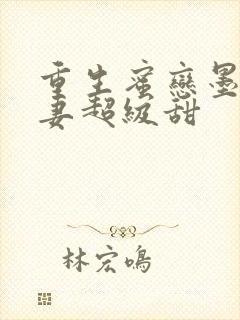 重生蜜戀墨
妻超級甜
林宏鳴